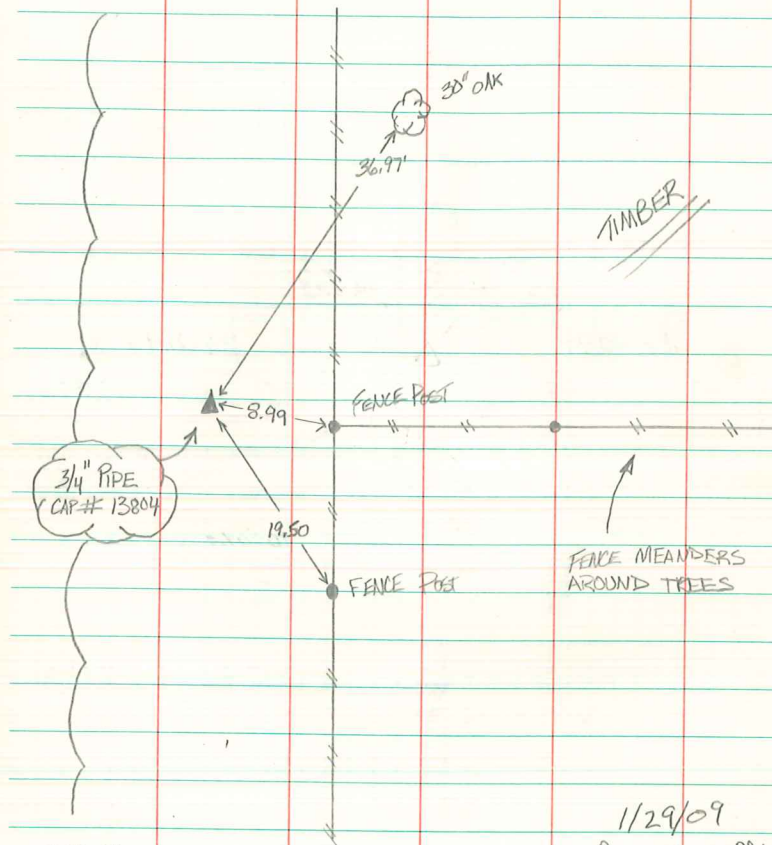 30" OAK
36.97'
TIMBER
FENCE POST
8.99
3/4" PIPE
CAP# 13804
19.50
FENCE POST
FENCE MEANDERS
AROUND TREES
1/29/09